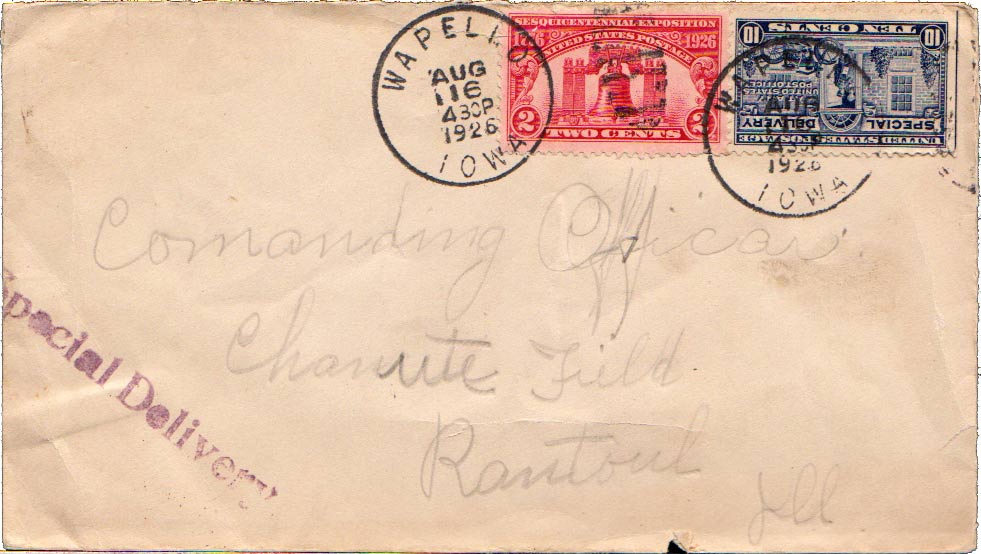 WAPELLO
AUG
16
430P
1926
IOWA
SESQUICENTENNIAL EXPOSITION
1776 UNITED STATES POSTAGE 1926
2 TWO CENTS 2
10 TEN CENTS 10
UNITED STATES
POST OFFICES
SPECIAL
DELIVERY
UNITED STATES POSTAGE
WAPELLO
AUG
16
430P
1926
IOWA
Comanding Officar
Chanute Field
Rantoul
Ill
Special Delivery